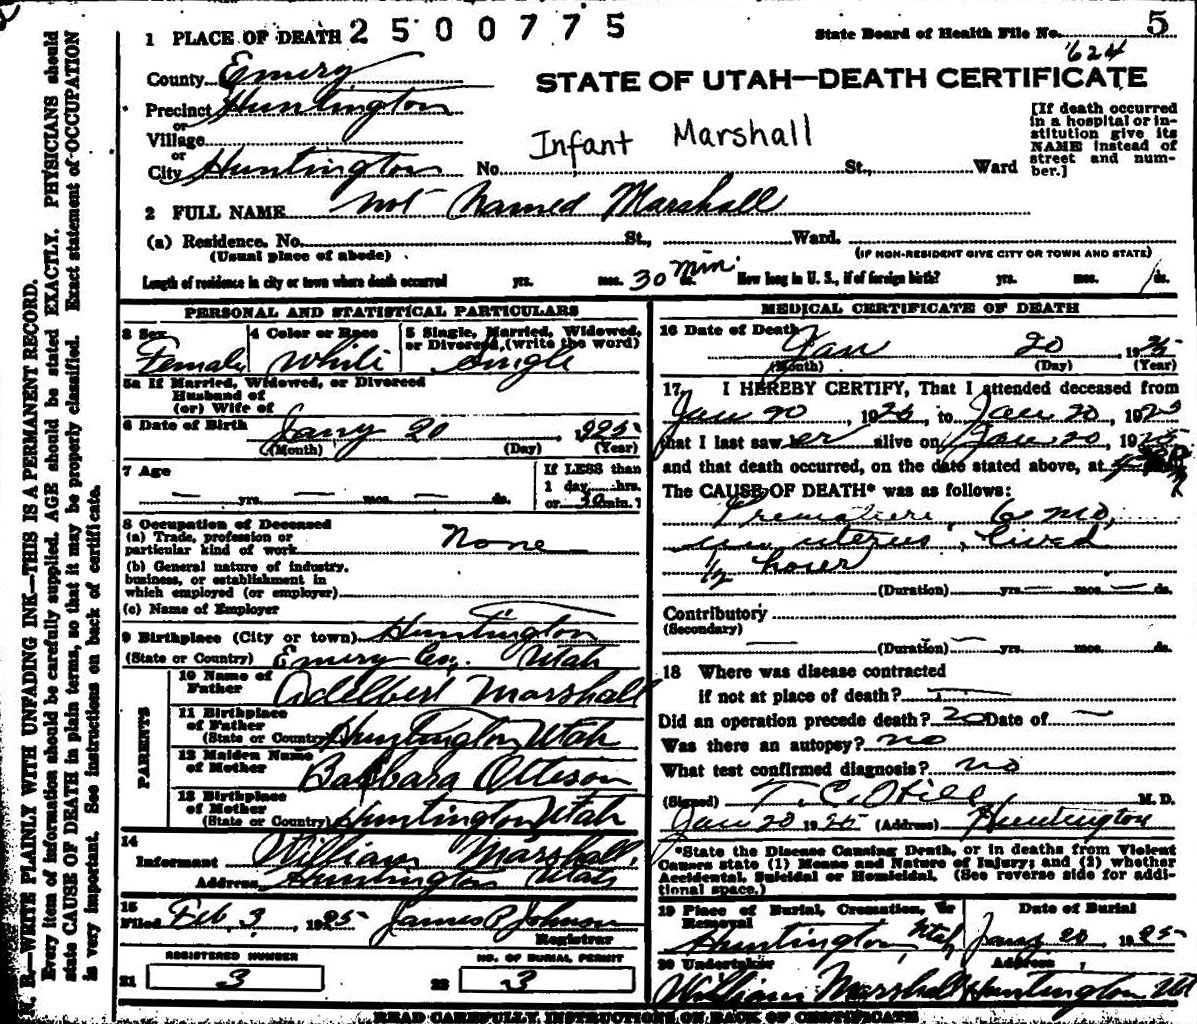 1 PLACE OF DEATH 2500775
State Board of Health File No. 5
624
County Emery
STATE OF UTAH—DEATH CERTIFICATE
Precinct Huntington
or
Village
or
City Huntington No. St., Ward
Infant Marshall
[If death occurred
in a hospital or in-
stitution give its
NAME instead of
street and num-
ber.]
2 FULL NAME not Named Marshall
(a) Residence. No. St., Ward.
(Usual place of abode) (IF NON-RESIDENT GIVE CITY OR TOWN AND STATE)
Length of residence in city or town where death occurred yrs. mos. 30 min. ds. How long in U. S., if of foreign birth? yrs. mos. ds.
PERSONAL AND STATISTICAL PARTICULARS
3 Sex 4 Color or Race 5 Single, Married, Widowed,
or Divorced, (write the word)
Female White Single
5a If Married, Widowed, or Divorced
Husband of
(or) Wife of
6 Date of Birth Jany 20, 1925
(Month) (Day) (Year)
7 Age
— yrs. — mos. — ds.
If LESS than
1 day hrs.
or 30 min.
8 Occupation of Deceased
(a) Trade, profession or
particular kind of work None
(b) General nature of industry,
business, or establishment in
which employed (or employer)
(c) Name of Employer
9 Birthplace (City or town) Huntington
(State or Country) Emery Co., Utah
PARENTS
10 Name of
Father Adelbert Marshall
11 Birthplace
of Father
(State or Country) Huntington Utah
12 Maiden Name
of Mother Barbara Otteson
13 Birthplace
of Mother
(State or Country) Huntington Utah
14
Informant William Marshall,
Address Huntington Utah
15
Filed Feb. 3, 1925 James P. Johnson
Registrar
REGISTERED NUMBER NO. OF BURIAL PERMIT
21 3 22 3
MEDICAL CERTIFICATE OF DEATH
16 Date of Death Jan 20, 1925
(Month) (Day) (Year)
17 I HEREBY CERTIFY, That I attended deceased from
Jan 20, 1925, to Jan 20, 1925
that I last saw her alive on Jan. 20, 1925
and that death occurred, on the date stated above, at
The CAUSE OF DEATH* was as follows:
Premature, 6 mo,
uterus, lived
1/2 hour
(Duration) yrs. — mos. — ds.
Contributory
(Secondary)
— (Duration) — yrs. mos. ds.
18 Where was disease contracted
if not at place of death? —
Did an operation precede death? no Date of —
Was there an autopsy? no
What test confirmed diagnosis? no
(Signed) T. C. Hill M. D.
Jan 20 1925 (Address) Huntington
*State the Disease Causing Death, or in deaths from Violent
Causes state (1) Means and Nature of Injury; and (2) whether
Accidental, Suicidal or Homicidal. (See reverse side for addi-
tional space.)
19 Place of Burial, Cremation, or
Removal Date of Burial
Huntington, Utah Jany 20, 1925
20 Undertaker Address
William Marshall Huntington Ut
READ CAREFULLY INSTRUCTIONS ON BACK OF CERTIFICATE
N. B.—WRITE PLAINLY WITH UNFADING INK—THIS IS A PERMANENT RECORD.
Every item of information should be carefully supplied. AGE should be stated EXACTLY. PHYSICIANS should
state CAUSE OF DEATH in plain terms, so that it may be properly classified. Exact statement of OCCUPATION
is very important. See instructions on back of certificate.